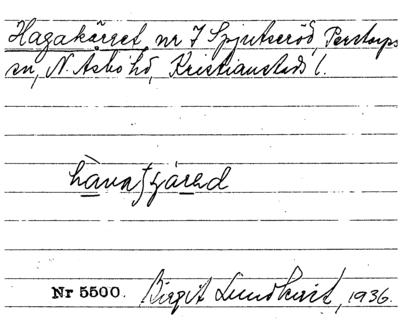 Hagakärret nr 7 Spjutseröd, Perstorps
sn, N. Åsbo hd, Kristianstads l.
Nr 5500. Birgit Lundkvist, 1936.